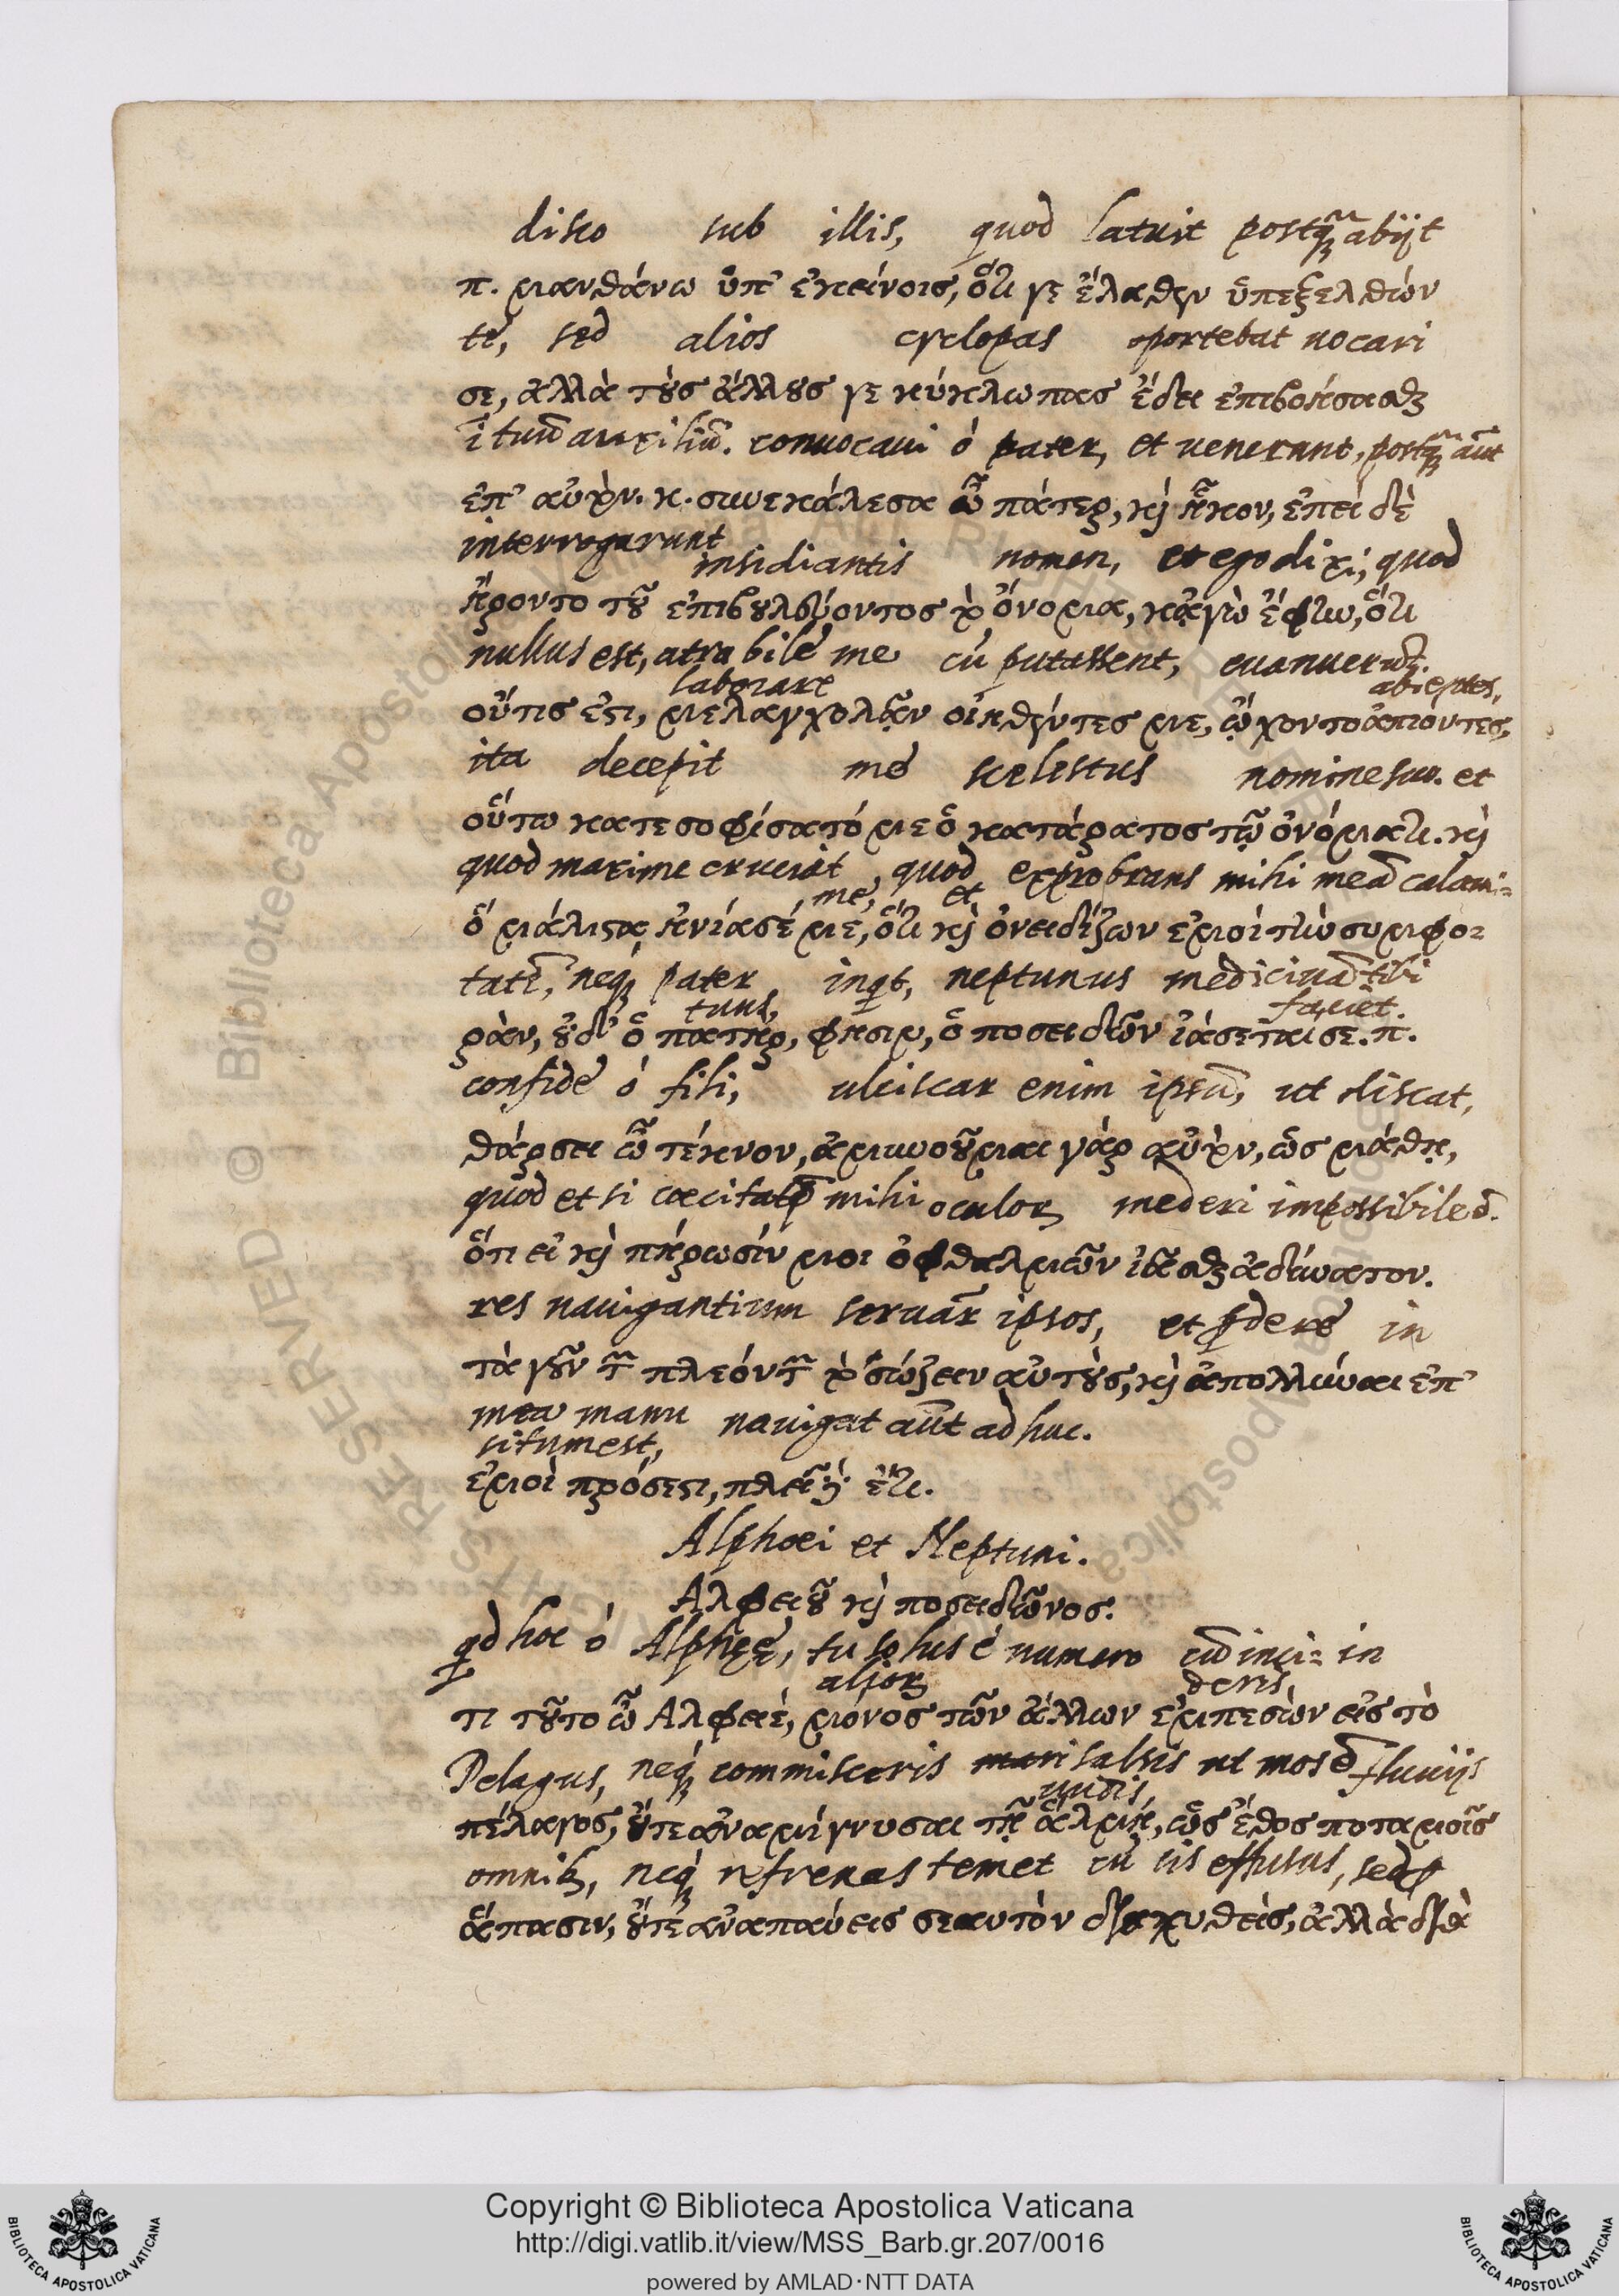 disco sub illis, quod latuit postq̃ꝫ abijt
π. μανθάνω ὑπ' ἐκείνοισ, ὅτι γε ἔλαθεν ὑπεξελθών
te, sed alios cyclopas oportebat uocari
σε, ἀλλὰ τοὺσ ἄλλουσ γε κύκλωπασ ἔδει ἐπιβοήσασθαι
ĩ tuũ auxiliũ. conuocaui ó pater, et uenerunt, postq̃ꝫ aũt
ἐπ' αὐτὸν. κ. συνεκάλεσα ὦ πάτερ, καὶ ἧκον, ἐπεὶ δὲ
interrogarunt insidiantis nomen, et ego dixi, quod
ἤροντο τοῦ ἐπιβουλεύοντοσ τὸ ὄνομα, κᾀγὼ ἔφην, ὅτι
nullus est, atra bile me cũ putassent, euanuerũt.
laborare abeuntes,
οὔτισ ἐστι, μελαγχολᾷν οἰηθέντεσ με, ᾤχοντο ἀπιόντεσ,
ita decepit me scelestus nomine suo. et
οὕτω κατεσοφίσατό με ὁ κατάρατοσ τῷ ὀνόματι. καὶ
quod maxime cruciat, quod exprobrans mihi meã calami=
me, et
ὃ μάλιστα ἠνίασέ με, ὅτι καὶ ὀνειδίζων ἐμοὶ τὴν συμφο=
tatẽ, neqꝫ pater inqt, neptunus medicinã tibi
tuus, faciet.
ρὰν, οὐδ' ὁ πατὴρ, φησιν, ὁ ποσειδῶν ἰάσεταί σε. π.
confide ó fili, ulciscar enim ipsũ, ut discat,
θάρσει ὦ τέκνον, ἀμυνοῦμαι γάρ αὐτὸν, ὡσ μάθῃ,
quod et si cecitatẽ mihi oculoꝝ mederi impossibile ẽ.
ὅτι εἰ καὶ πήρωσίν μοι ὀφθαλμῶν ἰᾶσθαι ἀδύνατον.
res nauigantium seruar̃ ipsos, et ꝑdere in
τὰ γοῦν τῶν πλεόντων τὸ σώζειν αὐτοὺσ, καὶ ἀπολλύναι ἐπ'
mea manu nauigat aũt adhuc.
situm est,
ἐμοὶ πρόσεστι, πλεῖ δὲ ἔτι.
Alphoei et Neptuni.
Αλφειοῦ καὶ ποσειδῶνοσ.
qd hoc ó Alphęe, tu solus é numero cũ inci= in
alioꝝ deris,
τι τοῦτο ὦ Αλφειέ, μόνοσ τῶν ἄλλων ἐμπεσὼν εἰσ τὸ
Pelagus, neqꝫ commisceris mari salsis ut mos ẽ fluuijs
undis,
πέλαγοσ, οὔτε ἀναμίγνυσαι τῇ ἅλμῃ, ὡσ ἔθοσ ποταμοῖσ
omnibꝫ, neqꝫ refrenas temet cũ sis effusus, sed ꝑ
ἅπασιν, οὔτε ἀναπαύεισ σεαυτὸν διαχυθείσ, ἀλλὰ διὰ
Copyright © Biblioteca Apostolica Vaticana
http://digi.vatlib.it/view/MSS_Barb.gr.207/0016
powered by AMLAD·NTT DATA
BIBLIOTECA APOSTOLICA VATICANA
BIBLIOTECA APOSTOLICA VATICANA